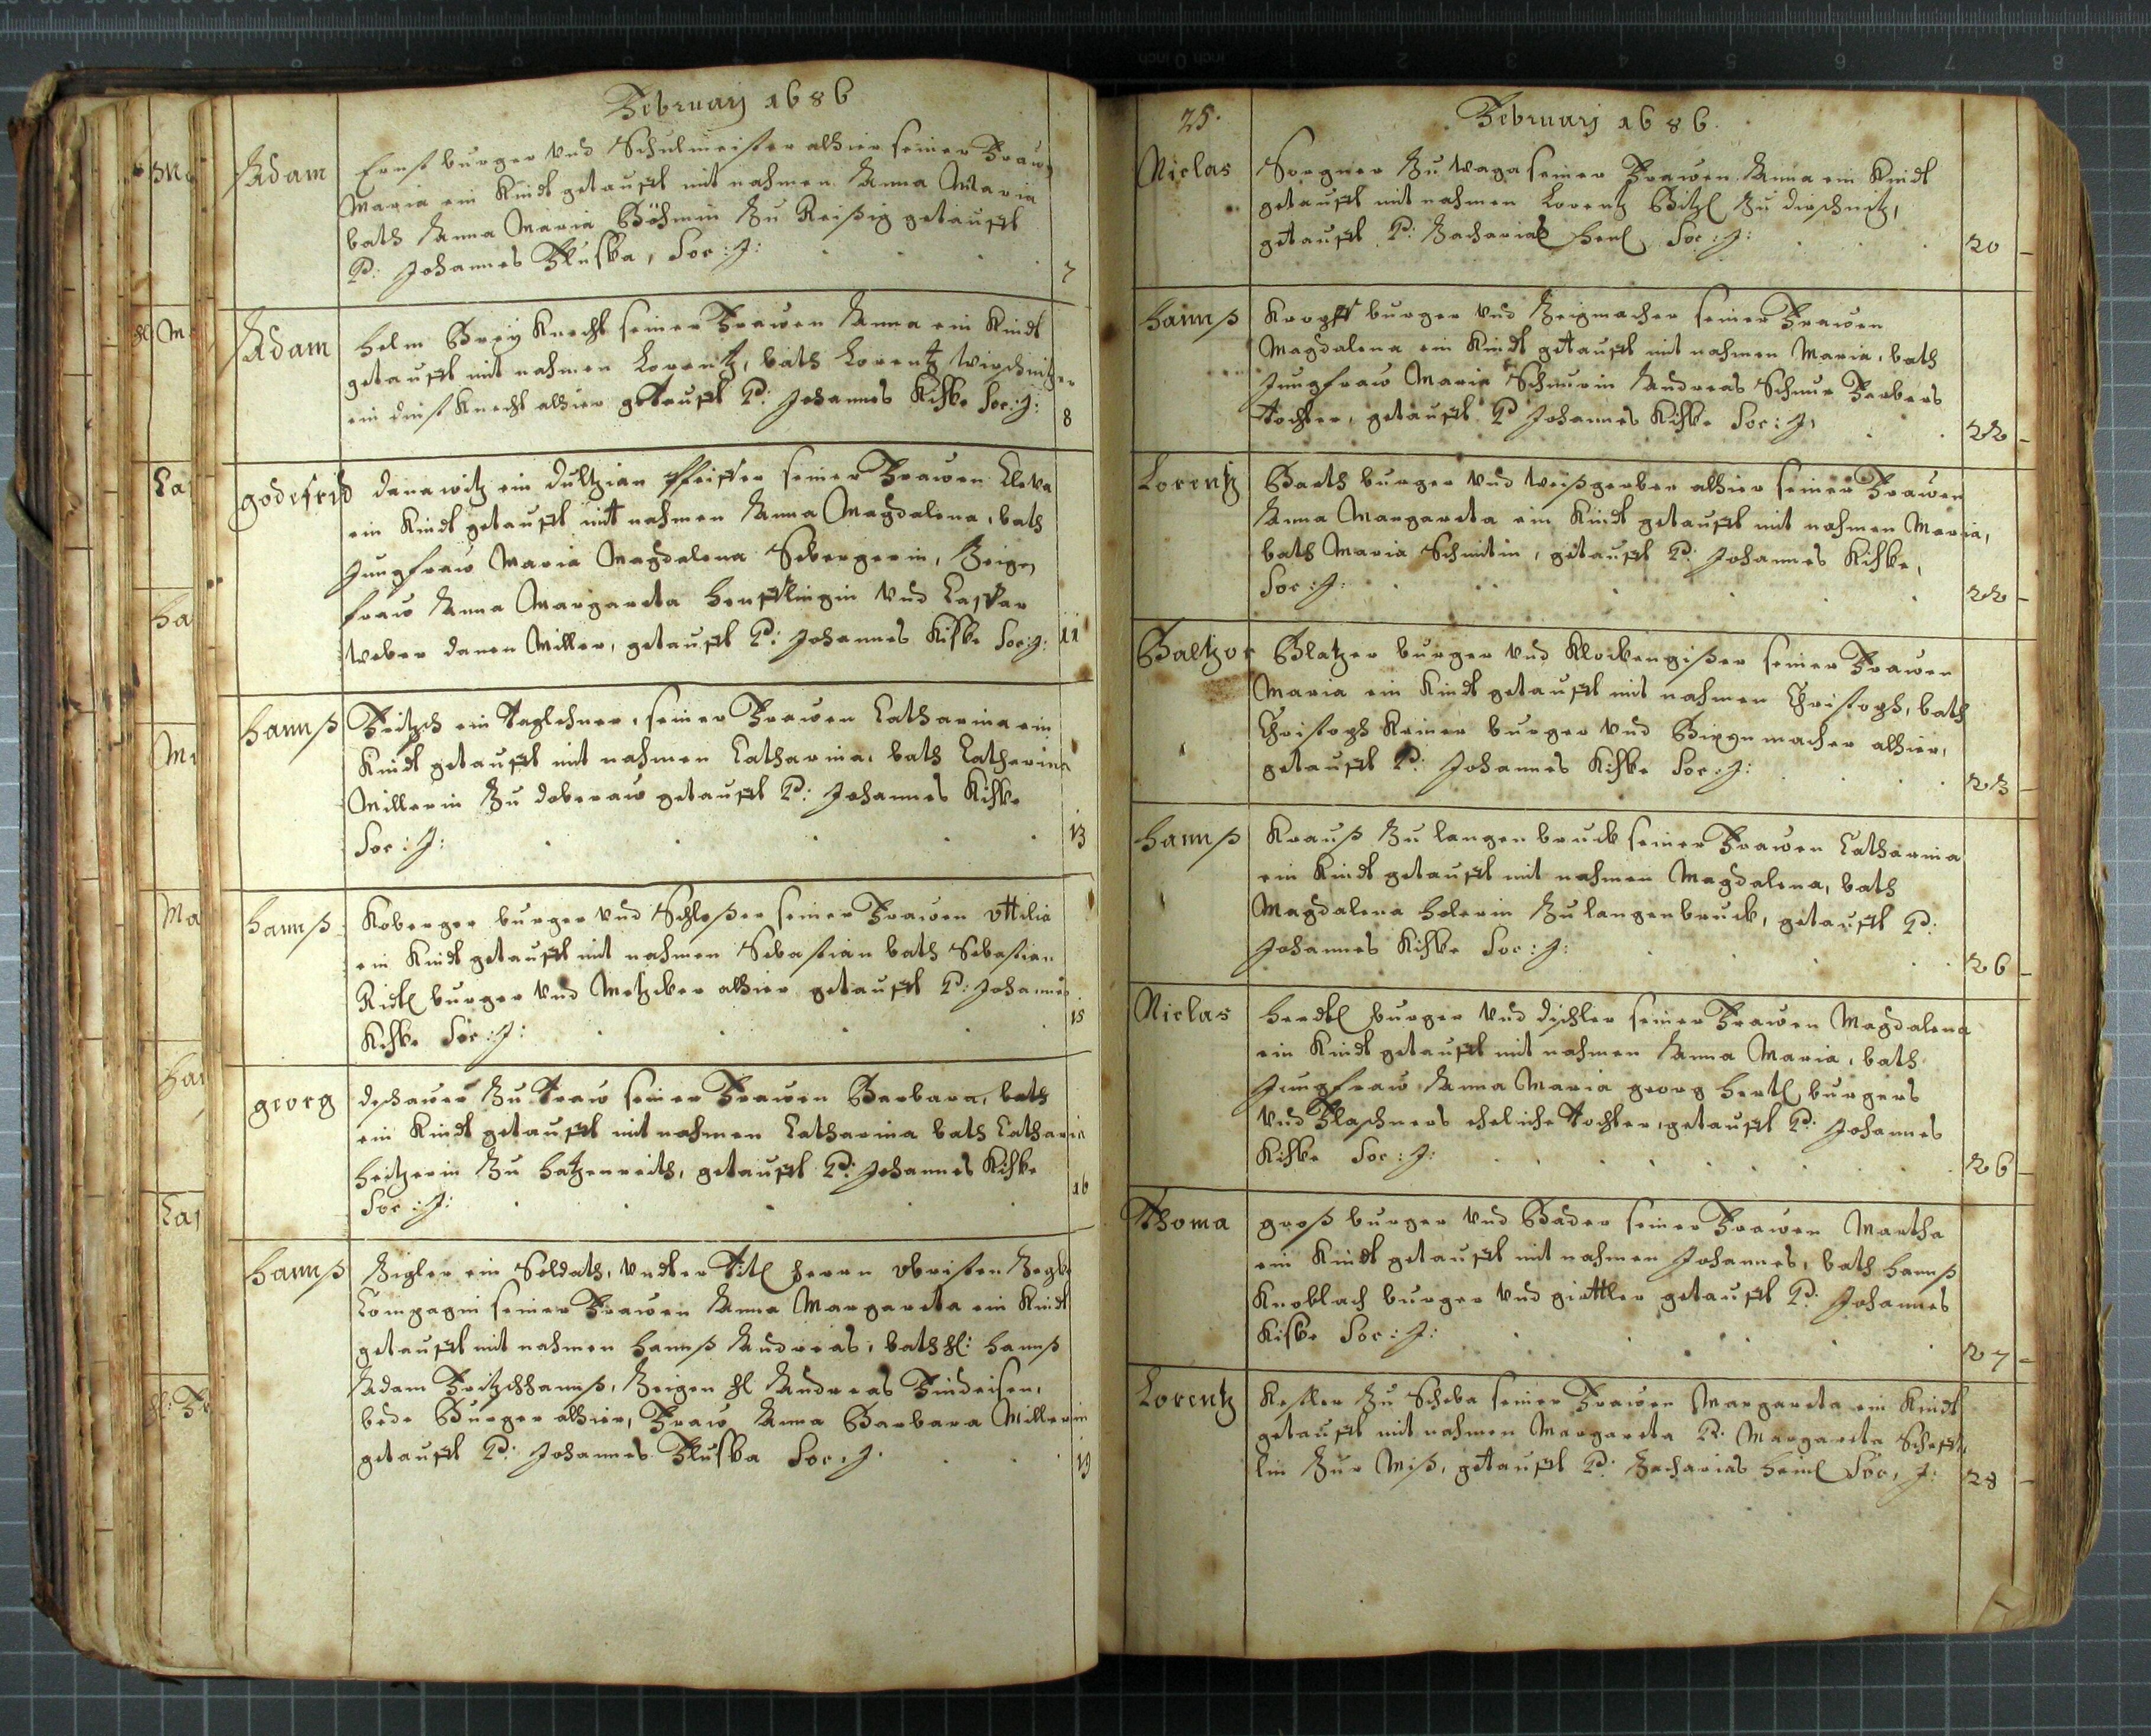 Februarij 1686
Adam Ernst burger Vnd Schulmeister alhier seiner Fraw
Maria ein Kindt getaufft mit nahmen Anna Maria
bath Anna Maria Böhmin Zu Reißig getaufft
P: Johannes Fluska, Soc: J: 7
Adam helm Brey Knecht seiner Frawen Anna ein Kindt
getaufft mit nahmen Lorentz, bath Lorentz
ein dinst Knecht alhier getaufft P: Johannes Kiske Soc: J: 8
godefrid danawitz ein seiner Frawen
ein Kindt getaufft mit nahmen Anna Magdalena, bath
Jungfraw Maria Magdalena Sebergerin, Zeigen
fraw Anna Margareta Vnd Caspar
Weber Miller, getaufft P: Johannes Kiske Soc: J: 11
hannß Fritzsch ein Taglehner, seiner Frawen Catharina ein
Kindt getaufft mit nahmen Catharina, bath Catharina
Millerin Zu doberaw getaufft P: Johannes Kiske
Soc: J: 13
hannß Koberger burger Vnd Schloßer seiner Frawen Ottilia
ein Kindt getaufft mit nahmen Sebastian bath Sebastian
Ridl burger Vnd Metzcker alhier getaufft P: Johannes
Kiske Soc: J: 15
georg dschauer Zu Traw seiner Frawen Barbara, bath
ein Kindt getaufft mit nahmen Catharina bath Catharin
heitzerin Zu hatzenreith, getaufft P: Johannes Kiske
Soc: J: 16
hannß Zigler ein Soldath, Vndter Titl herrn Obristen
Compagni seiner Frawen Anna Margareta ein Kindt
getaufft mit nahmen hannß Andreas, bath hl: hannß
Adam Fritzschhannß, Zeigen hl Andreas Findeisen,
bede Burger alhier, Fraw Anna Barbara Millerin
getaufft P: Johannes Fluska Soc: J: 19
25. Februarij 1686.
Niclas Sorgner Zu Waga seiner Frawen Anna ein Kindt
getaufft mit nahmen Lorentz Bitzl Zu dirschnitz,
getaufft P: Zacharias Soc: J: 20
hannß burger Vnd Zeigmacher seiner Frawen
Magdalena ein Kindt getaufft mit nahmen Maria, bath
Jungfraw Maria Schnurin Andreas Schnur Ferbers
Tochter, getaufft P Johannes Kiske Soc: J: 22
Lorentz Barth burger Vnd Weißgerber alhier seiner Frawen
Anna Margareta ein Kindt getaufft mit nahmen Maria,
bath Maria Schmitin, getaufft P: Johannes Kiske,
Soc: J: 22
Baltzor Blatzer burger Vnd Klockengißer seiner Frawen
Maria ein Kindt getaufft mit nahmen Christoph, bath
Christoph Kriner burger Vnd Bixenmacher alhier,
getaufft P: Johannes Kiske Soc: J: 23
hannß Krauß Zu langenbruck seiner Frawen Catharina
ein Kindt getaufft mit nahmen Magdalena, bath
Magdalena holerin Zu langenbruck, getaufft P:
Johannes Kiske Soc: J: 26
Niclas hardtl burger Vnd dischler seiner Frawen Magdalena
ein Kindt getaufft mit nahmen Anna Maria, bath
Jungfraw Anna Maria georg hertl burgers
Vnd Flaschners eheliche Tochter, getaufft P: Johannes
Kiske Soc: J: 26
Thoma groß burger Vnd Bader seiner Frawen Martha
ein Kindt getaufft mit nahmen Johannes, bath hannß
Knoblach burger Vnd girttler getaufft P: Johannes
Kiske Soc: J: 27
Lorentz Keßler Zu Scheba seiner Frawen Margareta ein Kindt
getaufft mit nahmen Margareta P. Margareta
lin Zur Miß, getaufft P: Zacharias heinl Soc: J: 28